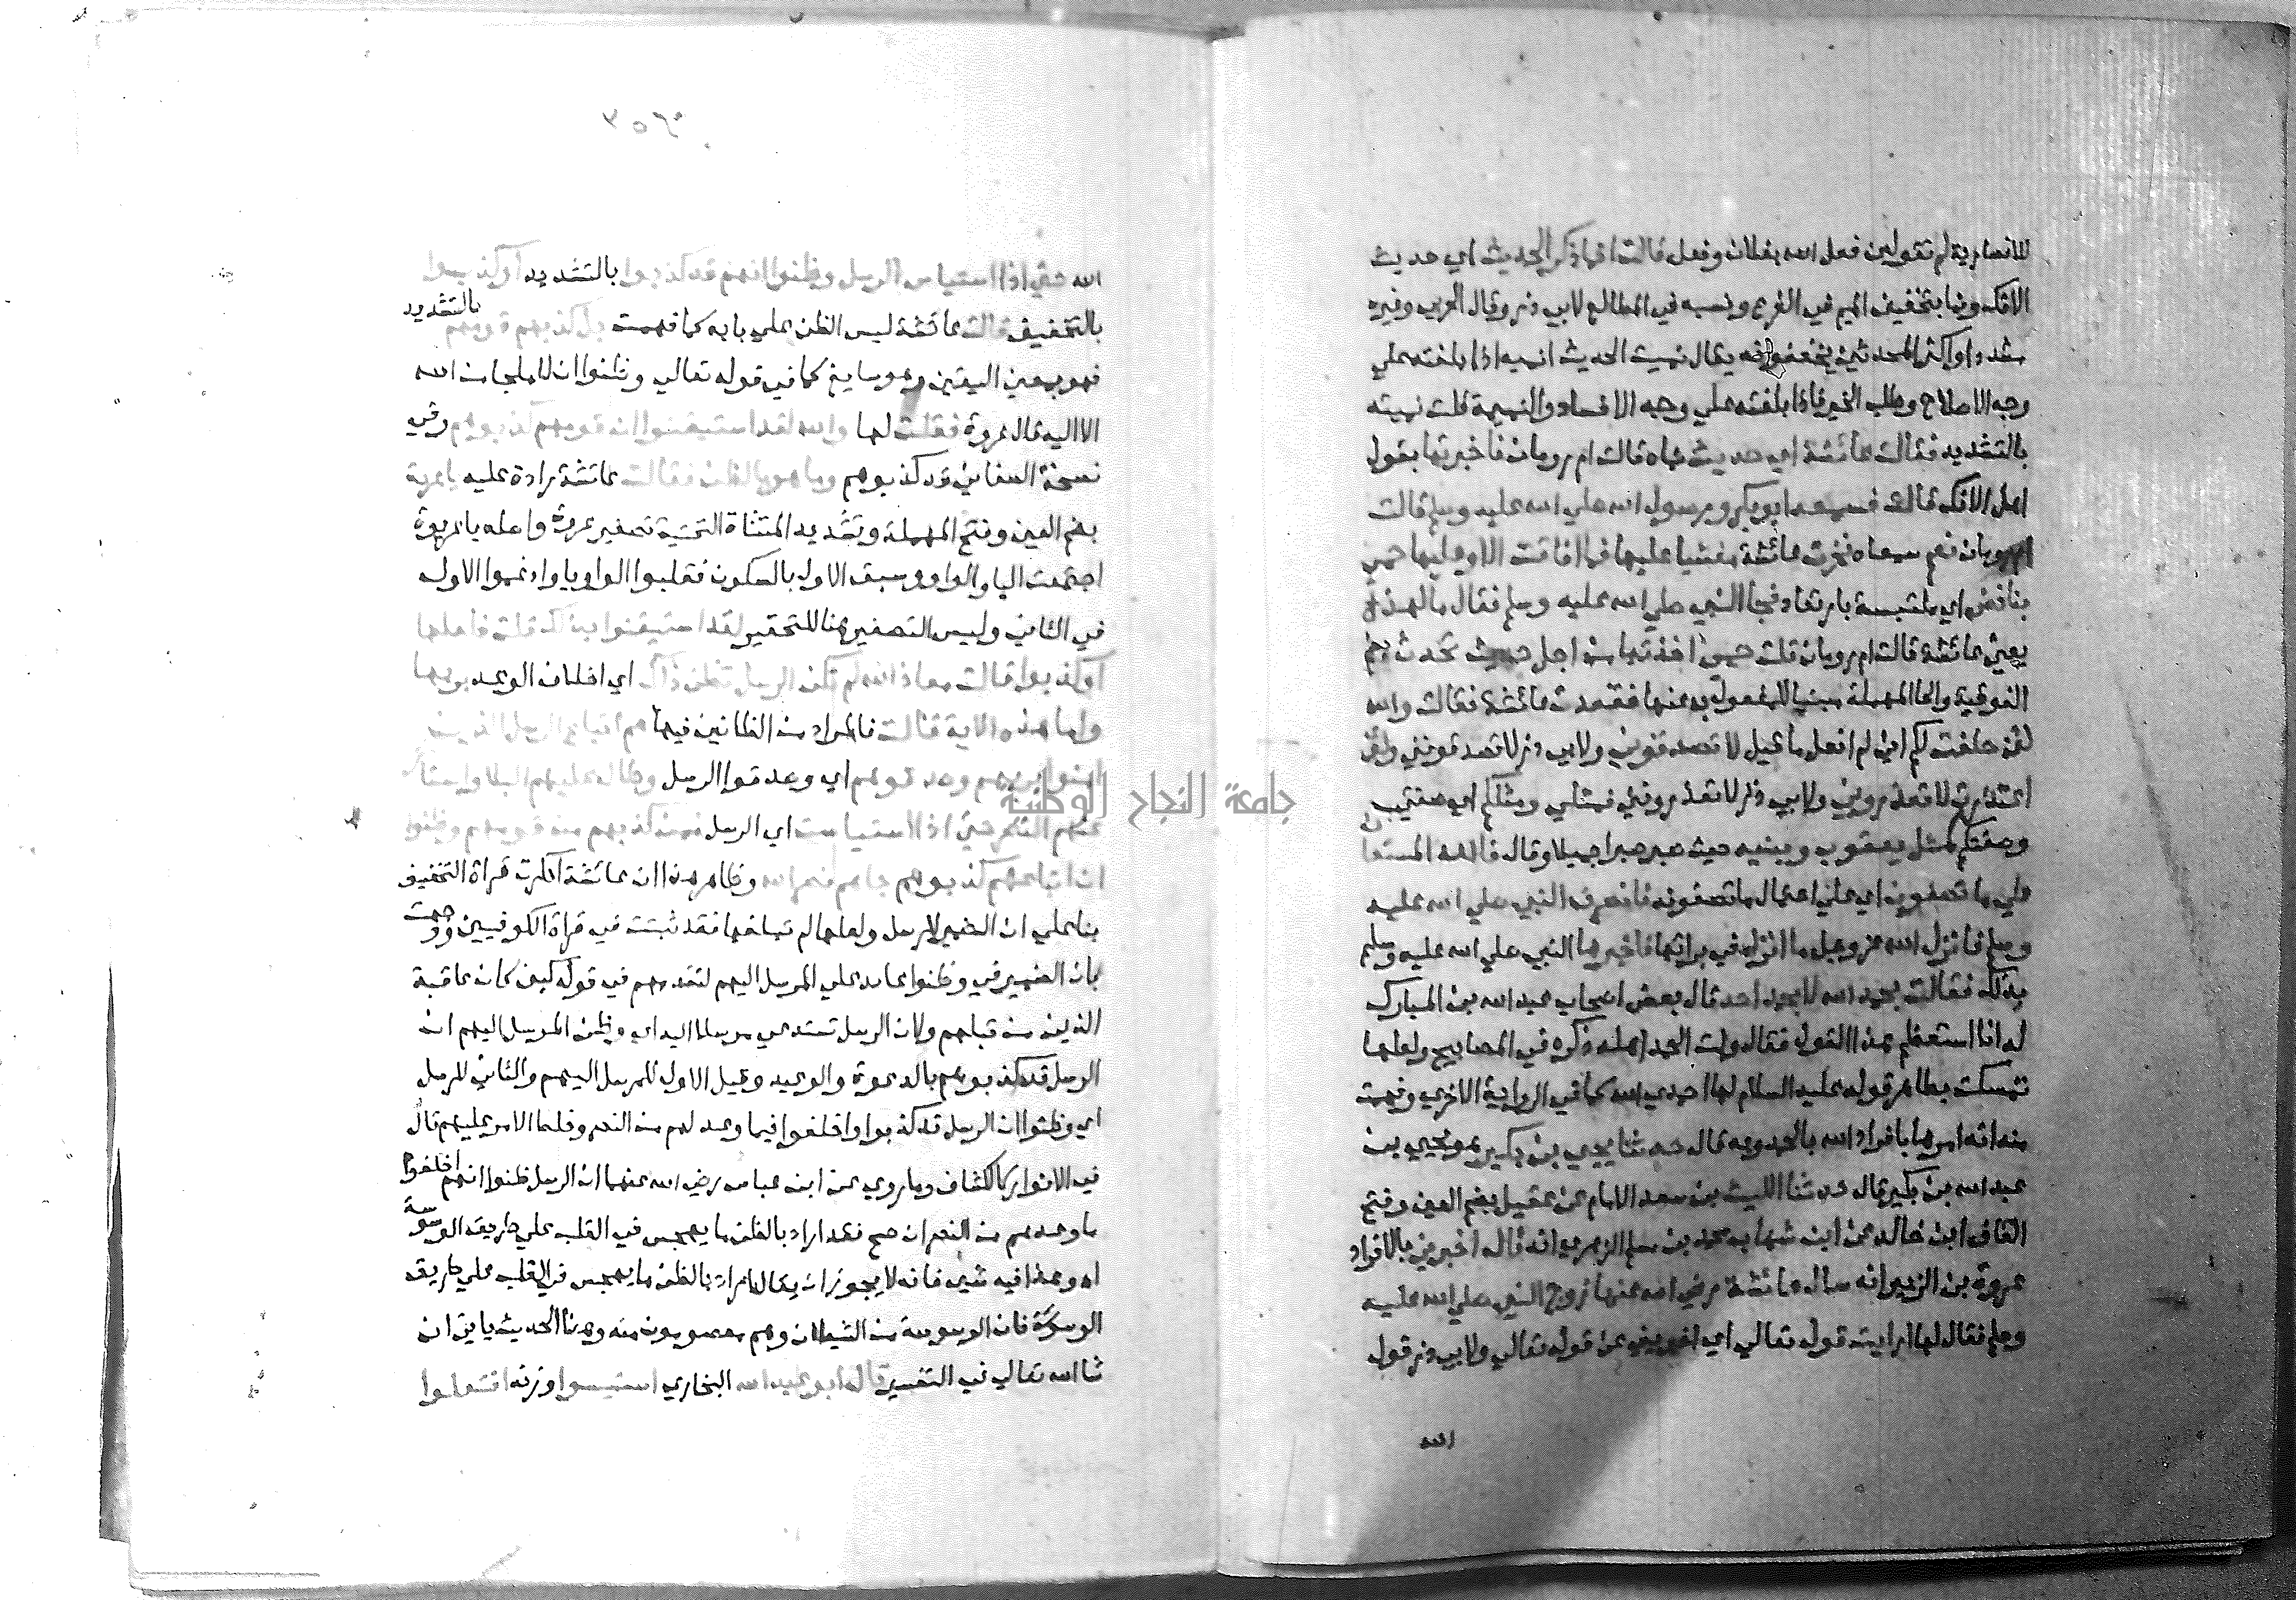 للانصارية لم تقولين فعل الله بفلان وفعل قالت انه نما ذكر الحديث اي حديث
الافك ونما بتخفيف الميم في الفرع ونسبه في المطالع لابي ذر وقال الحربي وغيره
مشددا واكثر المحدثين يخففونه يقال نميت الحديث انميه اذا بلغته علي
وجه الاصلاح وطلب الخير فاذا بلغته علي وجه الافساد والنميمة قلت نميته
بالتشديد فقالت عائشة اي حديث نماه قالت ام رومان فاخبرتها بقول
اهل الافك قالت فسمعه ابو بكر ورسول الله صلي الله عليه وسلم قالت
ام رومان نعم سمعاه فخرت عائشة مغشيا عليها فما افاقت الا وعليها حمي
بنافض اي ملتبسة بارتعاد فجا النبي صلي الله عليه وسلم فقال ما لهذه
يعني عائشة قالت ام رومان قلت حمي اخذتها من اجل حديث تحدث بضم
الفوقية والحا المهملة مبنيا للمفعول به عنها فقعدت عائشة فقالت والله
لئن حلفت لكم اني لم افعل ما قيل لا تصدقوني ولابي ذر لا تصدقونني ولئن
اعتذرت لا تعذروني ولابي ذر لا تعذرونني فمثلي ومثلكم اي صفتي
وصفتكم كمثل يعقوب وبنيه حيث صبر صبرا جميلا وقال فالله المستعان
علي ما تصفون اي علي احتمال ما تصفونه فانصرف النبي صلي الله عليه
وسلم فانزل الله عز وجل ما انزل في براتها فاخبرها النبي صلي الله عليه وسلم
بذلك فقالت بحمد الله لا بحمد احد قال بعض اصحاب عبد الله بن المبارك
له انا استعظم هذا القول فقال ولت الحمد اهله ذكره في المصابيح ولعلها
تمسكت بظاهر قوله عليه السلام لها احمدي الله كما في الرواية الاخري وفهمت
منه انه امرها بافراد الله بالحمد وبه قال حدثنا يحيي بن بكير هو يحيي بن
عبد الله بن بكير قال حدثنا الليث بن سعد الامام عن عقيل بضم العين وفتح
القاف ابن خالد عن ابن شهاب محمد بن مسلم الزهري انه قال اخبرني بالافراد
عروة بن الزبير انه سال عائشة رضي الله عنها زوج النبي صلي الله عليه
وسلم فقال لها ارايت قوله تعالي اي اخبريني عن قوله تعالي ولابي ذر قول
الله
٣٥٤
الله حتي اذا استياس الرسل وظنوا انهم قد كذبوا بالتشديد او كذبوا
بالتخفيف قالت عائشة ليس الظن علي بابه كما فهمت بل كذبهم قومهم بالتشديد
فهو بمعني اليقين وهو سايغ كما في قوله تعالي وظنوا ان لا ملجا من الله
الا اليه قال عروة فقلت لها والله لقد استيقنوا ان قومهم كذبوهم وفي
نسخة الصغاني قد كذبوهم وما هو بالظن فقالت عائشة رادة عليه يا عرية
بضم العين وفتح المهملة وتشديد المثناة التحتية تصغير عروة واصله يا عريوة
اجتمعت اليا والواو وسبق الاول بالسكون فقلبوا الواو يا وادغموا الاول
في الثاني وليس التصغير هنا للتحقير لقد استيقنوا بذلك قلت فلعلها
او كذبوا قالت معاذ الله لم تكن الرسل تظن ذلك اي اخلاف الوعد بربها
واما هذه الاية قالت فالمراد من الظانين فيها هم اتباع الرسل الذين
امنوا بربهم وصدقوهم اي وصدقوا الرسل وطال عليهم البلا واستاخر
عنهم النصر حتي اذا استياست اي الرسل ممن كذبهم من قومهم وظنوا
ان اتباعهم كذبوهم جاهم نصر الله وظاهر هذا ان عائشة انكرت قراة التخفيف
بنا علي ان الضمير للرسل ولعلها لم تبلغها فقد ثبتت في قراة الكوفيين ووجهت
بان الضمير في وظنوا عايد علي المرسل اليهم لتقدمهم في قوله كيف كان عاقبة
الذين من قبلهم ولان الرسل تستدعي مرسلا اليه اي وظن المرسل اليهم ان
الرسل قد كذبوهم بالدعوة والوعيد وقيل الاول للمرسل اليهم والثاني للرسل
اي وظنوا ان الرسل قد كذبوا واخلفوا فيما وعد لهم من النصر وخلط الامر عليهم قال
في الانوار كالكشاف وما روي عن ابن عباس رضي الله عنهما ان الرسل ظنوا انهم اخلفوا
ما وعدهم من النصر ان صح فقد اراد بالظن ما يهجس في القلب علي طريق الوسوسة
اه وهذا فيه شي فانه لا يجوز ان يقال اراد بالظن ما يهجس في القلب علي طريق
الوسوسة فان الوسوسة من الشيطان وهم معصومون منه وهذا الحديث ياتي ان
شا الله تعالي في التفسير قال ابو عبد الله البخاري استيئسوا وزنه افتعلوا
جامعة النجاح الوطنية